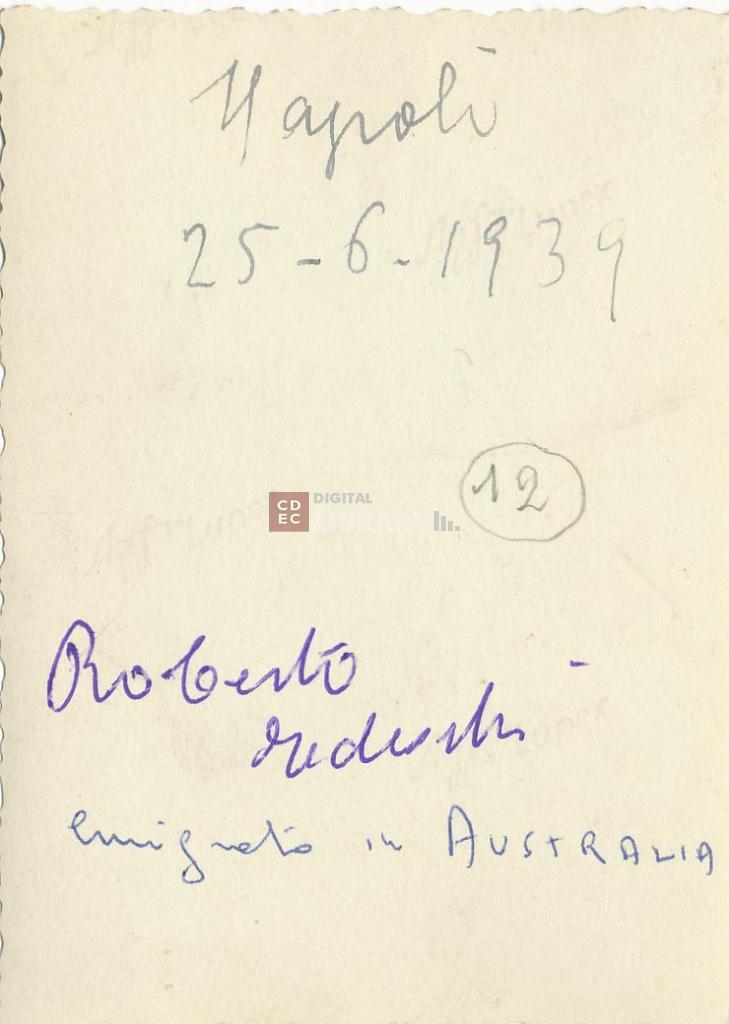 Napoli
25-6-1939
12
CDEC DIGITAL
LIBRARY
Roberto
Tedeschi
emigrato in AUSTRALIA